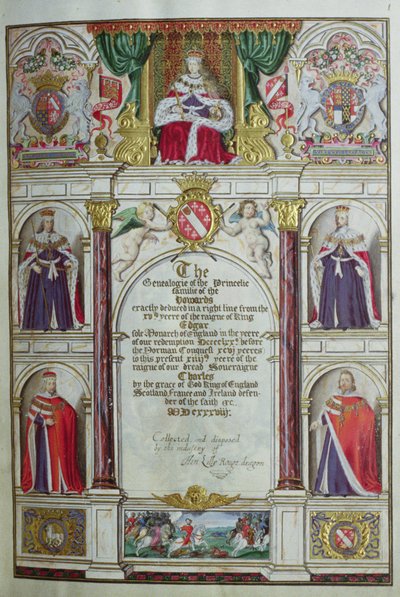 1
The
Genealogie of the Princelie
familie of the
Howards
exactly deduced in a right line from the
xvᵗʰ yeere of the raigne of King
Edgar
sole Monarch of England in the yeere
of our redemption Dcccclxxᵗʰ before
the Norman Conquest xcvj yeeres
to this present xiiijᵗʰ yeere of the
raigne of our dread Soueraigne
Charles
by the grace of God King of England
Scotland, France and Ireland defen-
der of the faith &c.
MDCxxxviij:
Collected and disposed
by the industry of
Hen Lilly Rouge dragon